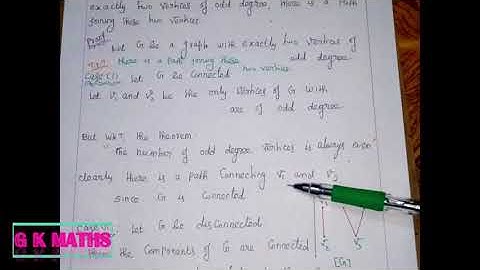 exactly two vertices of odd degree, there is a Path
joining these two vertices
Proof
Let G be a graph with exactly two vertices of
odd degree
There is a path joining these two vertices
Case (i) Let G be Connected
Let V₁ and V₂ be the only vertices of G with
are of odd degree
But W.K.T, the theorem
"The number of odd degree vertices is always even"
clearly there is a path Connecting V₁ and V₂
since G is Connected
Case ii) Let G be disConnected
Then the Components of G are Connected
[G]
G K MATHS